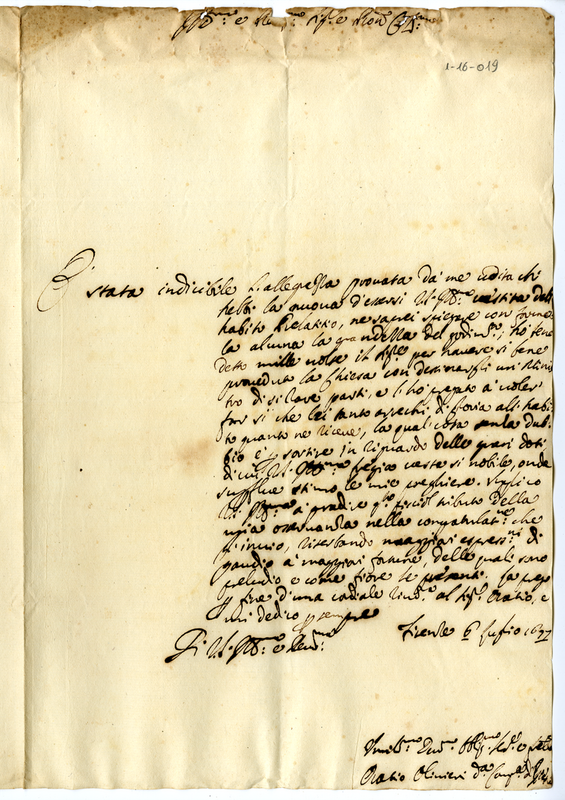 Ill:mo e Rev:mo Sig:re e Pron: Col:mo
1-16-019
È stata indicibile l'allegrezza provata da me udita ch'
hebbi la nuova d'essersi V.S. Ill:ma vestita dell'
habito Prelatizio, ne saprei spiegare con formo
la alcuna la grandezza del godim:to; hò bene
detto mille volte il Sig:re per havere si bene
proveduta la Chiesa con destinarsili un Minis
tro di si rare parti, e li hò pregato a voler
far si che lei tanto arrechi di gloria all'habi
to quanto ne riceve, la qual cosa senza dub
bio è p sortire in riguardo delle gran doti
di cui V.S. Ill:ma fregia veste si nobile, onde
superflue stimo le mie preghiere. Supplico
V.S. Ill:ma a gradire q:to tributo della
mia osservanza nella congratulat:ne che
gl'invio, riserbando maggiori espress:ni di
gaudio a maggiori fortune, delle quali sono
preludio e come fiore le presenti. La prego
p fine d'una cordiale riv:za al Sig: Oratio, e
mi dedico p sempre
Di V.S. Ill:ma e Rev:ma
Firenze 6 Luglio
Oratio Olivieri